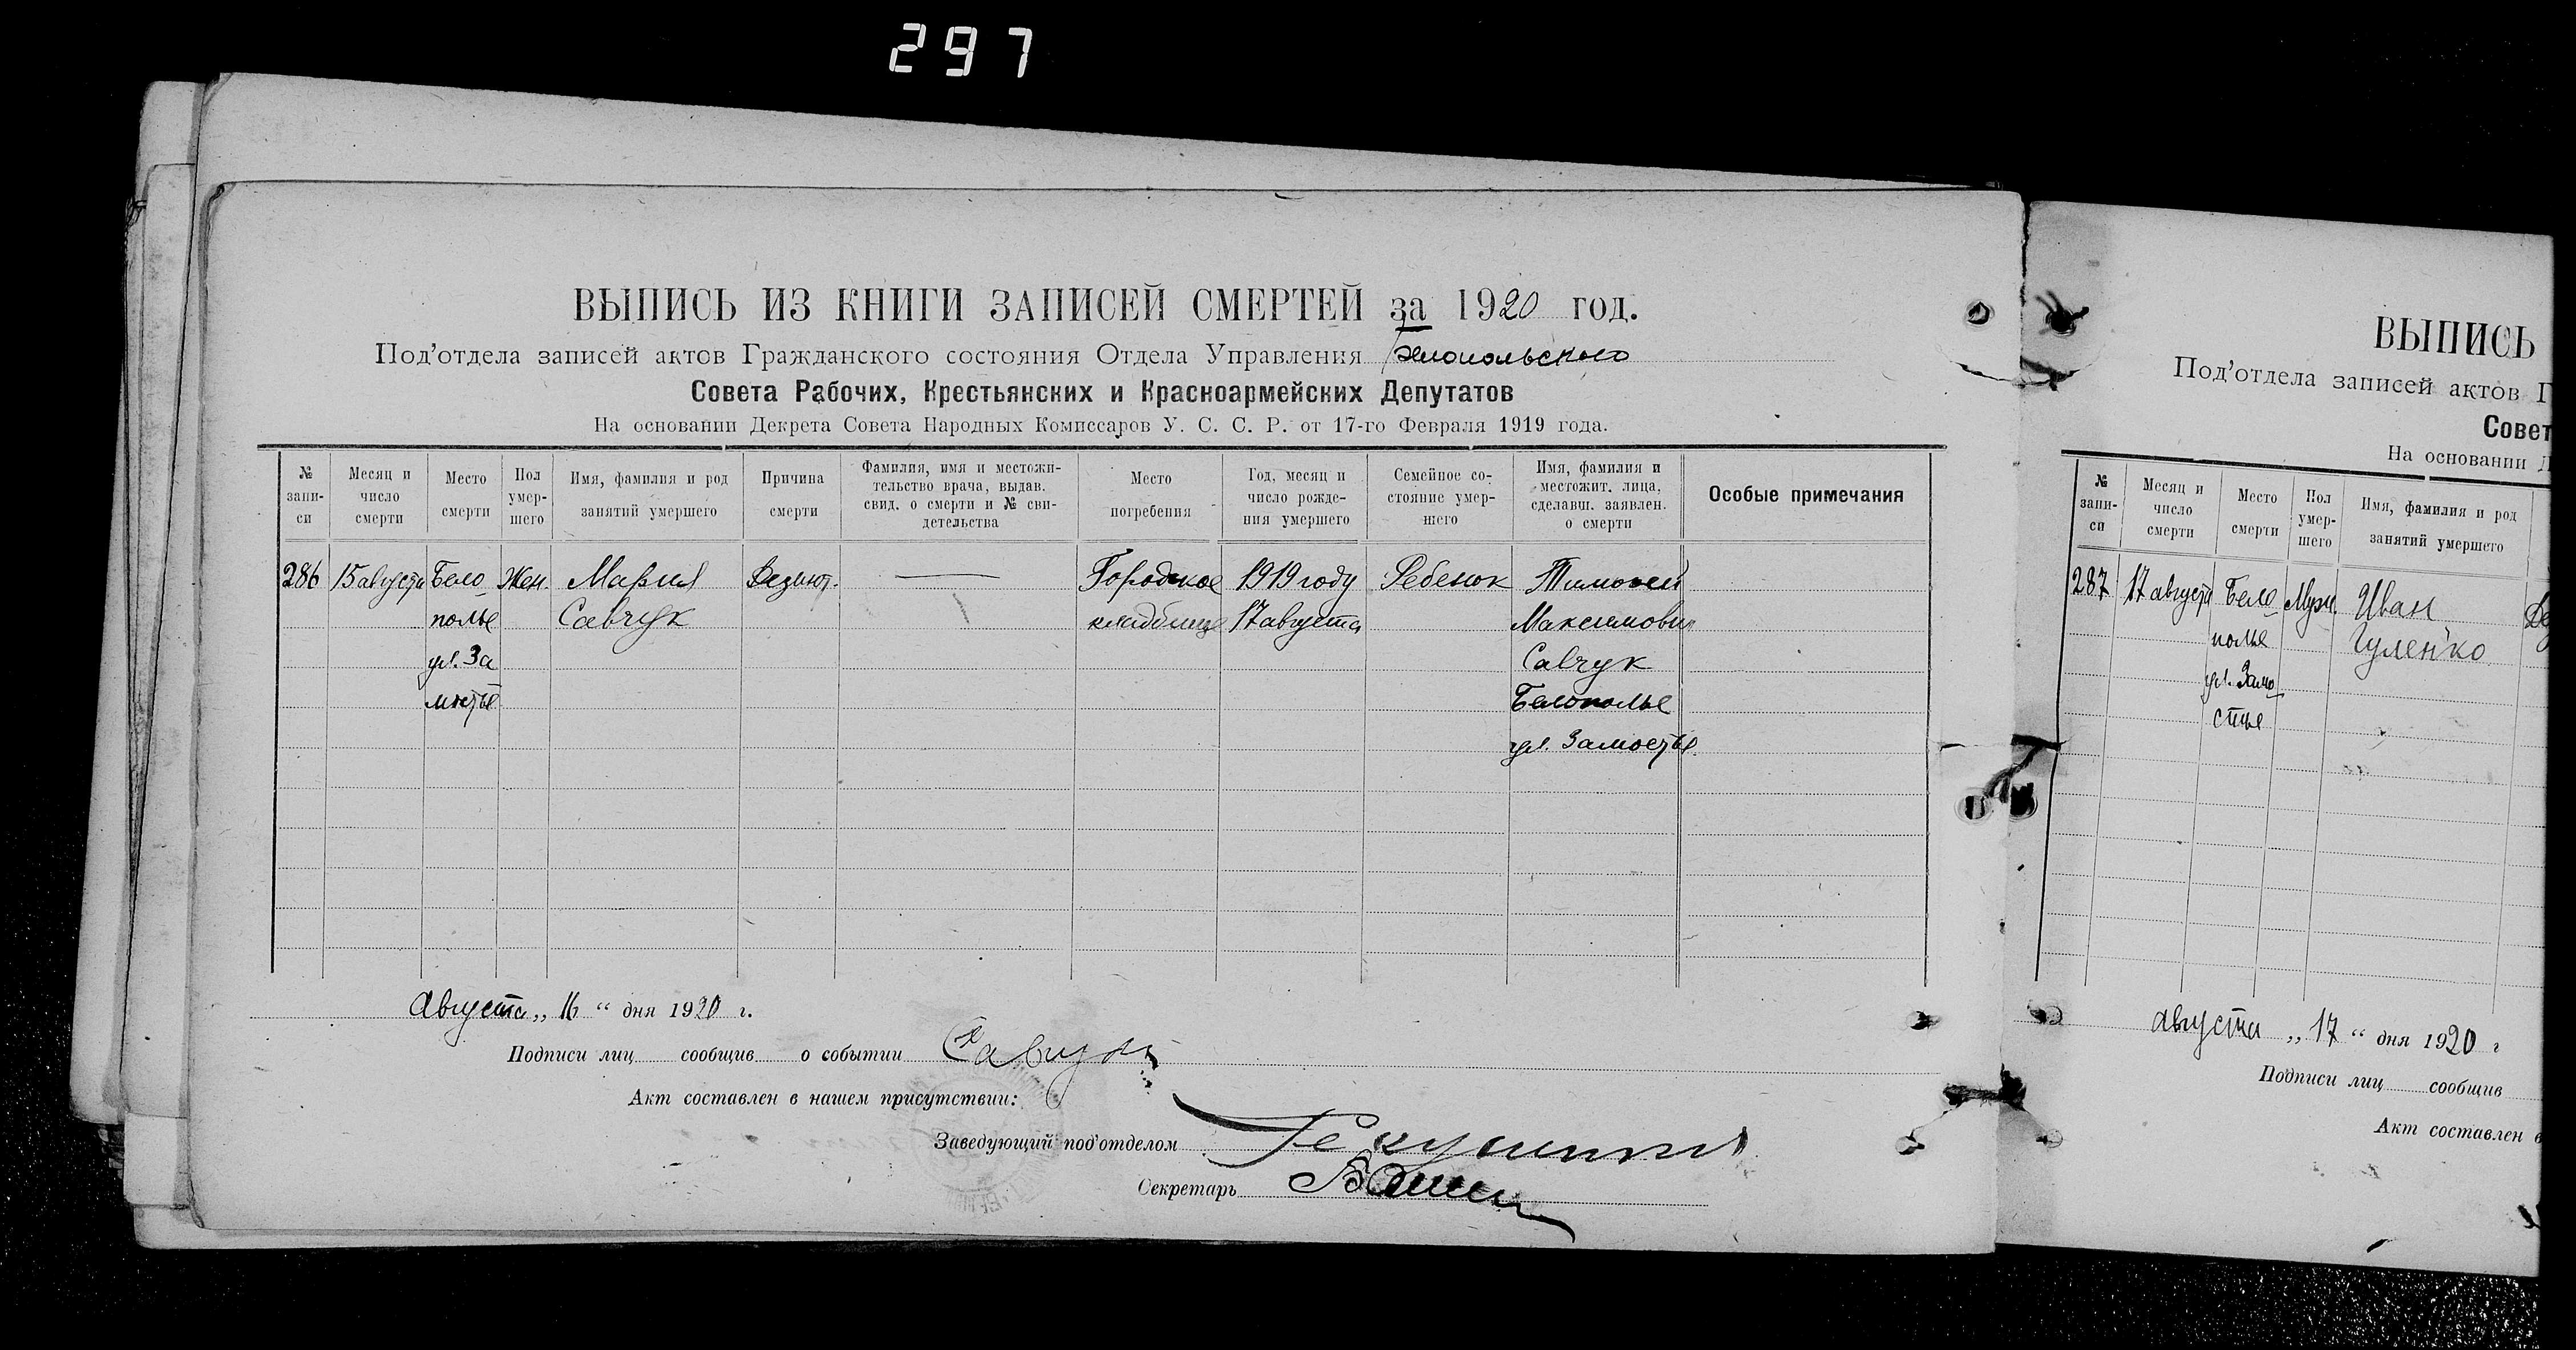 297
ВЫПИСЬ ИЗ КНИГИ ЗАПИСЕЙ СМЕРТЕЙ за 1920 год.
Под'отдела записей актов Гражданского состояния Отдела Управления Белопольского
Совета Рабочих, Крестьянских и Красноармейских Депутатов
На основании Декрета Совета Народных Комиссаров У. С. С. Р. от 17-го Февраля 1919 года.
№ запи-
си
Месяц и
число
смерти
Место
смерти
Пол
умер-
шего
Имя, фамилия и род
занятий умершего
Причина
смерти
Фамилия, имя и местожи-
тельство врача, выдав.
свид. о смерти и № сви-
детельства
Место
погребения
Год, месяц и
число рожде-
ния умершего
Семейное со-
стояние умер-
шего
Имя, фамилия и
местожит. лица,
сделавш. заявлен.
о смерти
Особые примечания
286
15 августа
Бело
полье
ул. За
мостье
Жен.
Мария
Савчук
Дезинт.
Городское
кладбище
1919 году
17 августа
Ребенок
Тимофей
Максимович
Савчук
Белополье
ул. Замостье
Августа „ 16 “ дня 1920 г.
Подписи лиц сообщив о событии Савчук
Акт составлен в нашем присутствии:
Заведующий под'отделом
Секретарь
ВЫПИСЬ
Под'отдела записей актов Г
Совет
На основании Д
№
запи-
си
Месяц и
число
смерти
Место
смерти
Пол
умер-
шего
Имя, фамилия и род
занятий умершего
287
17 августа
Бело
полье
ул. Замо
стье
Муж.
Иван
Гуленко
августа „ 17 “ дня 1920 г
Подписи лиц сообщив
Акт составлен в